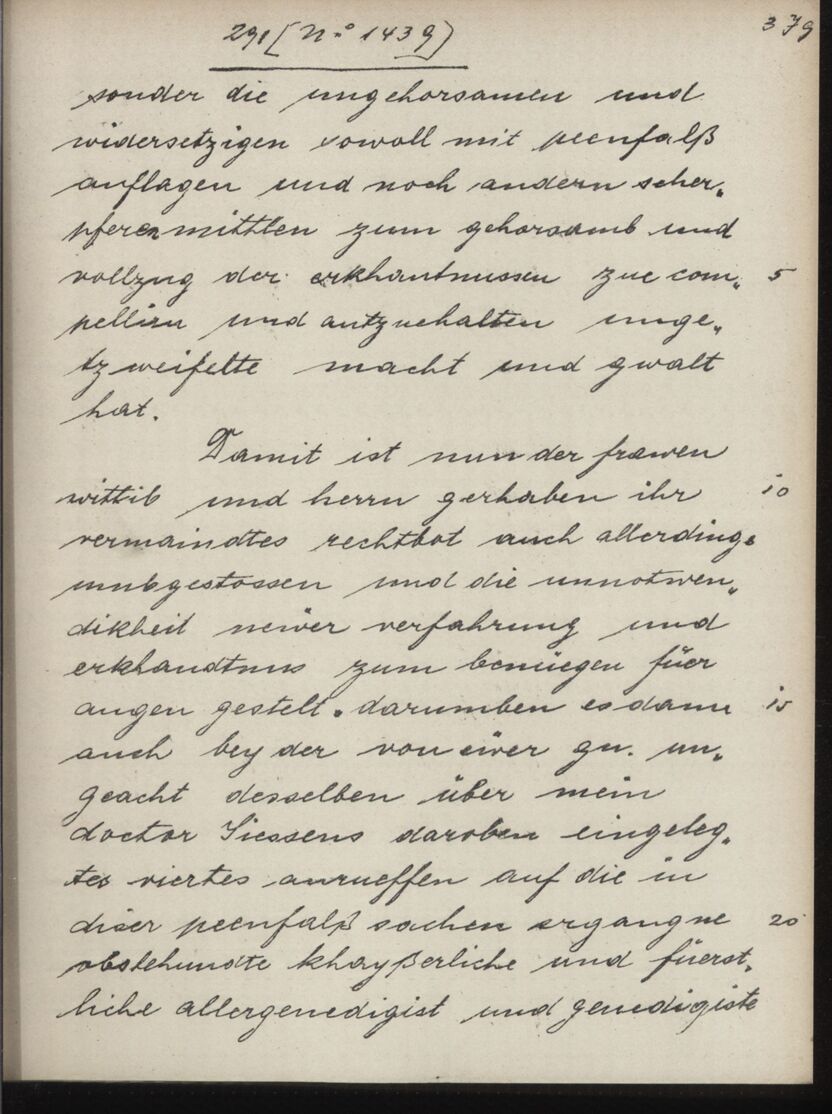 291 (No 1439)
379
sonder die ungehorsamen und
widersetzigen sowoll mit peenfalß
auflagen und noch andern scher„
pferen mittlen zum gehorsamb und
vollzug der erkhantnussen zue com„ 5
pelliern und antzuehalten unge„
tzweifelte macht und gwalt
hat.
Damit ist nun der frawen
wittib und herrn gerhaben ihr 10
vermaindtes rechtbot auch allerdings
umbgestossen und die unnotwen„
dikheit newer verfahrung und
erkhandtnus zum benüegen füer
augen gestelt. darumben es dann 15
auch bey der von ewer gn. un„
geacht desselben über mein
doctor Siessens daroben eingeleg„
tes viertes anrueffen auf die in
diser peenfalß sachen ergangne 20
obstehundte khayßerliche und füerst„
liche allergenedigist und genedigiste